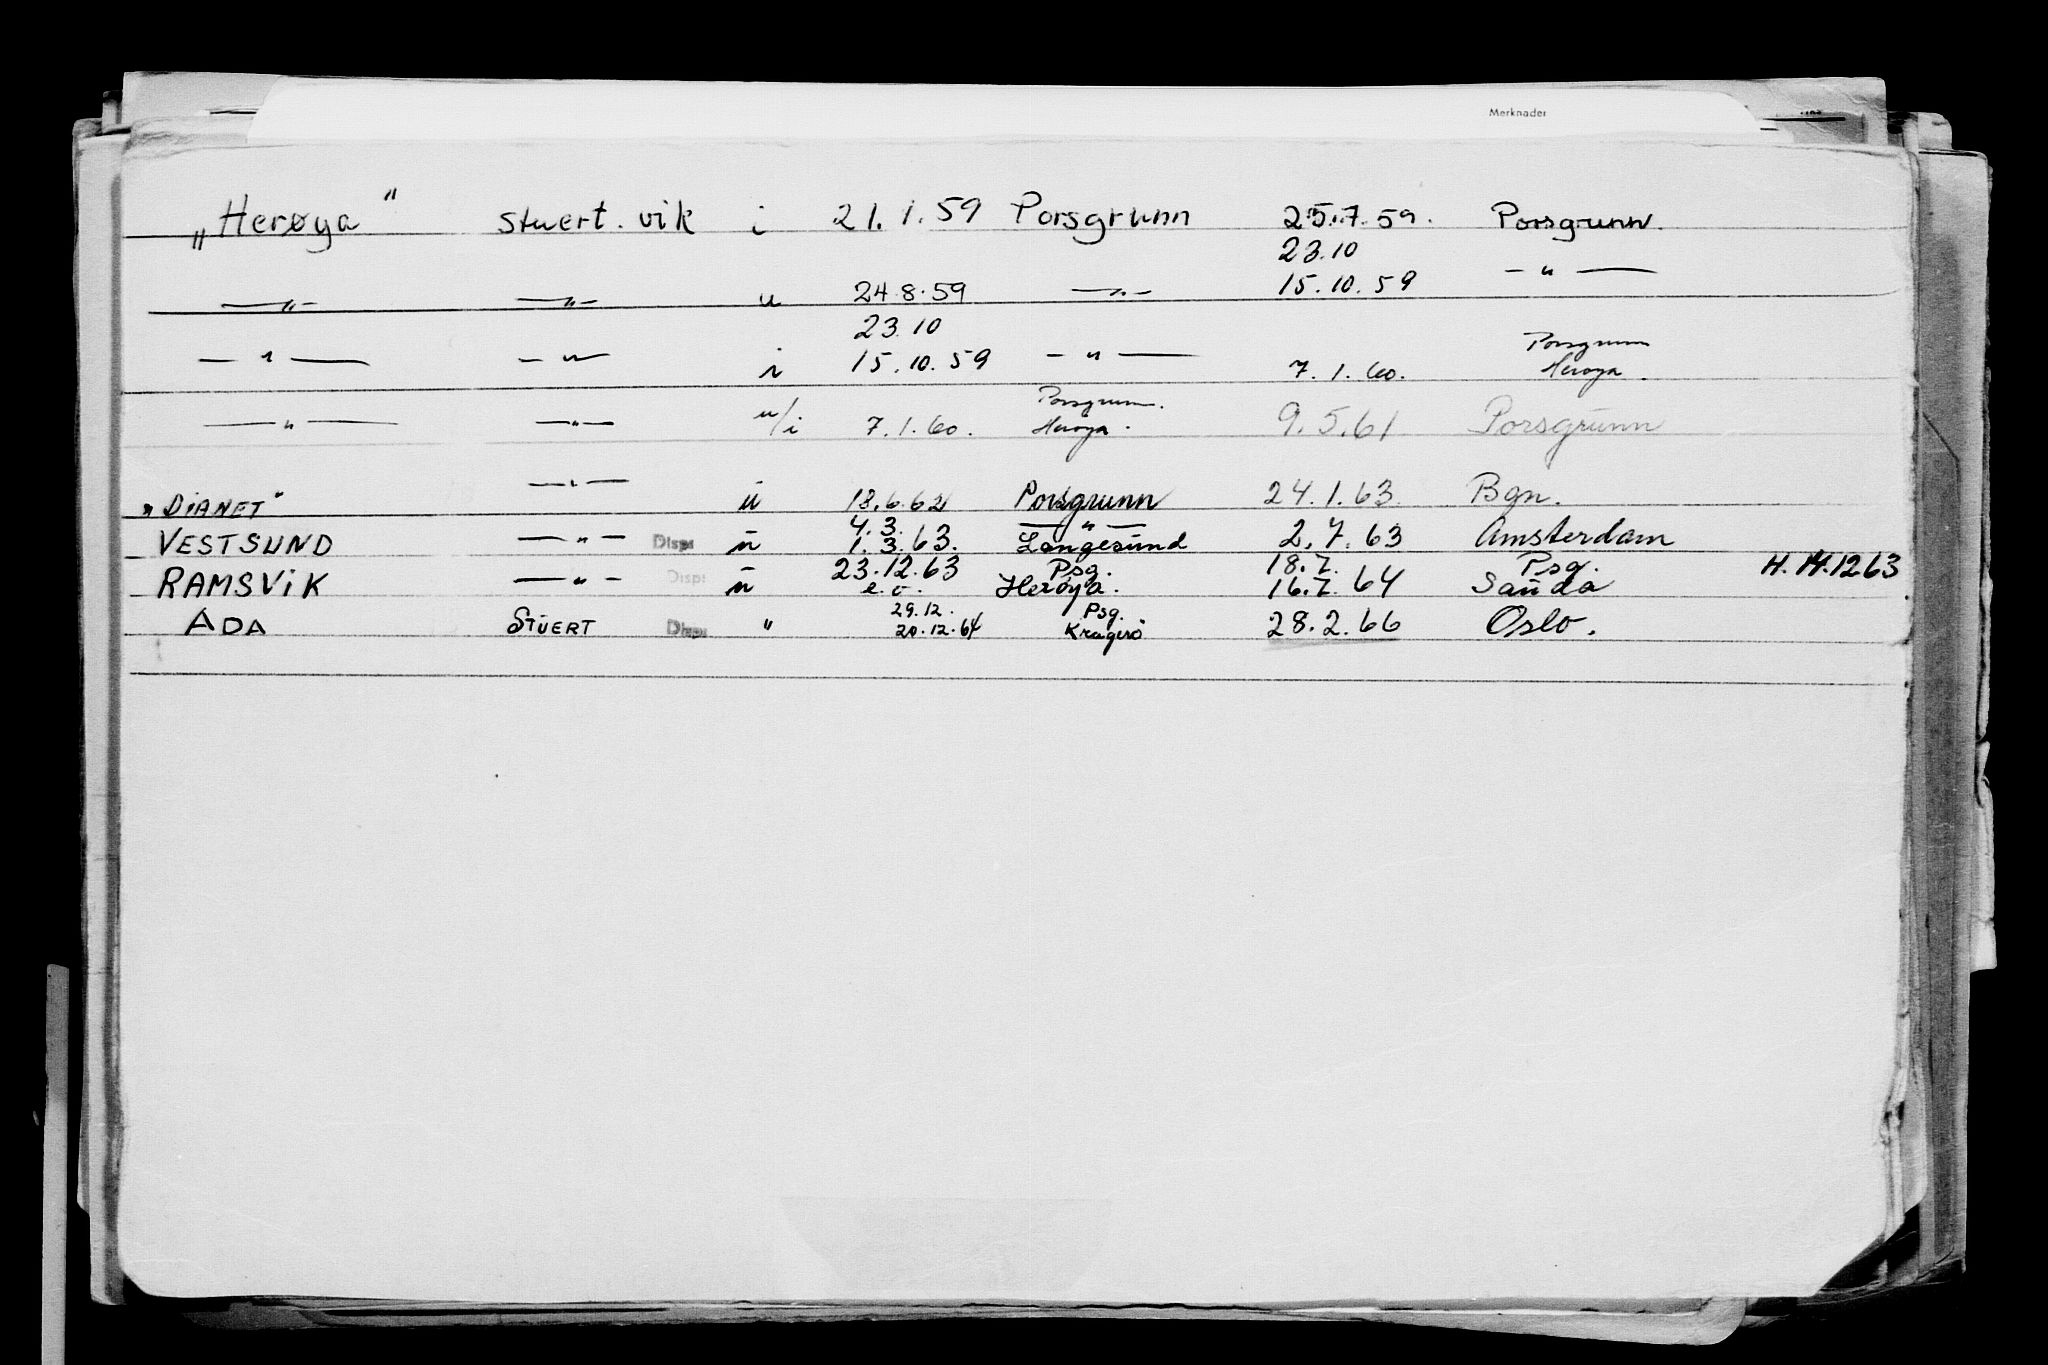 Merknader
„Herøya" Stuert. vik i 21.1.59 Porsgrunn 25.7.59. Porsgrunn.
23.10
—„— —„— u 24.8.59 —„— 15.10.59 —„—
23.10
Porsgrunn
—„— —„— i 15.10.59 —„— 7.1.60. Herøya.
Porsgrunn.
—„— —„— u/i 7.1.60. Herøya. 9.5.61 Porsgrunn
„DIANET" —„— u 18.6.62 Porsgrunn 24.1.63. Bgn.
4.3. —„—
VESTSUND —„— Disp: u 1.3.63. Langesund 2.7.63 Amsterdam
23.12.63 Psg. 18.7. Psg. H. 14.12.63
RAMSVIK —„— Disp: u e.o. Herøya. 16.7.64 Sauda
29.12. Psg.
ADA STUERT Disp: „ 20.12.64 Kragerö 28.2.66 Oslo.